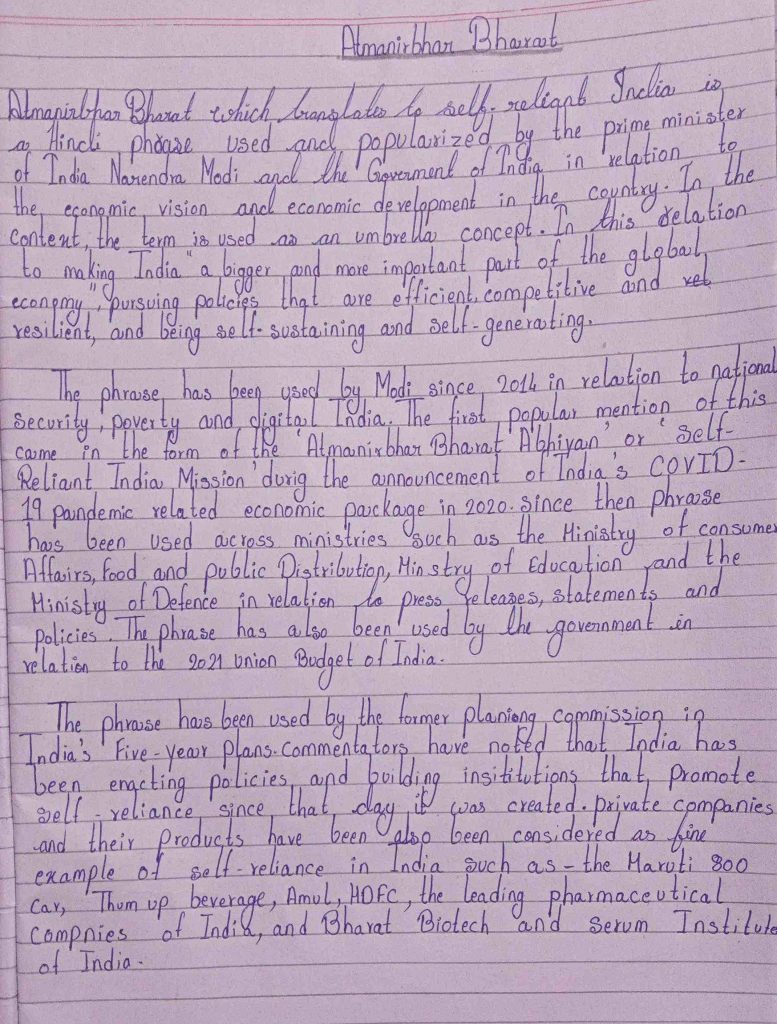 Atmanirbhar Bharat
Atmanirbhar Bharat which translates to self-reliant India is
a Hindi phrase used and popularized by the prime minister
of India Narendra Modi and the Goverment of India in relation to
the economic vision and economic development in the country. In the
content, the term is used as an umbrella concept. In this relation
to making India "a bigger and more important part of the global
economy", pursuing policies that are efficient, competitive and rel
resilient, and being self-sustaining and self-generating.
The phrase has been used by Modi since 2014 in relation to national
security, poverty and digital India. The first popular mention of this
came in the form of the 'Atmanirbhar Bharat Abhiyan' or 'Self-
Reliant India Mission' durig the announcement of India's COVID-
19 pandemic related economic package in 2020. Since then phrase
has been used across ministries such as the Ministry of consumer
Affairs, food and public Distribution, Minstry of Education and the
Ministry of Defence in relation to press releases, statements and
policies. The phrase has also been used by the government in
relation to the 2021 union Budget of India.
The phrase has been used by the former planiong commission in
India's Five-year plans. Commentators have noted that India has
been enacting policies and building insititutions that promote
self-reliance since that day it was created. private companies
and their products have been also been considered as fine
example of self-reliance in India such as - the Maruti 800
car, Thum up beverage, Amul, HDFC, the leading pharmaceutical
compnies of India, and Bharat Biotech and Serum Institute
of India.